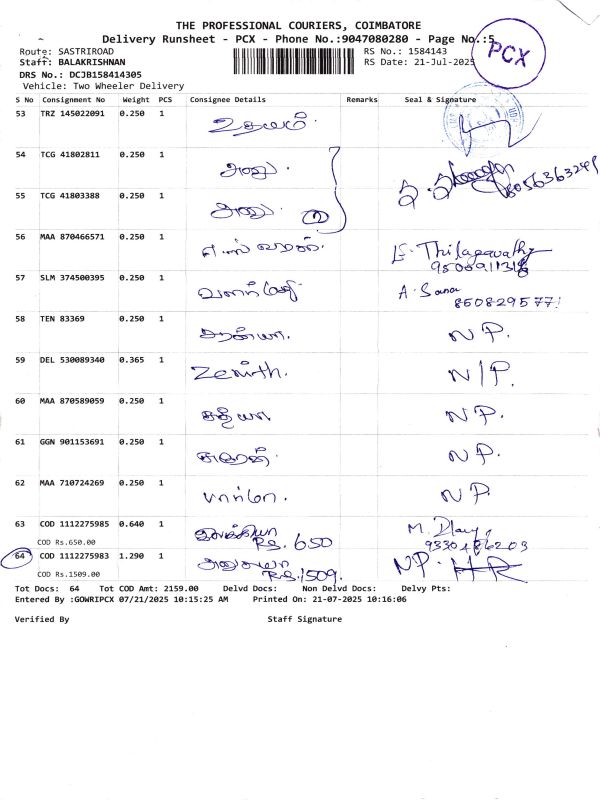 THE PROFESSIONAL COURIERS, COIMBATORE
Delivery Runsheet - PCX - Phone No.:9047080280 - Page No.:5
PCX
Route: SASTRIROAD
RS No.: 1584143
Staff: BALAKRISHNAN
RS Date: 21-Jul-2025
DRS No.: DCJB158414305
Vehicle: Two Wheeler Delivery
S No Consignment No Weight PCS Consignee Details Remarks Seal & Signature
53 TRZ 145022091 0.250 1 உதயம்
54 TCG 41802811 0.250 1 அனு.
55 TCG 41803388 0.250 1 அனு. 2
56 MAA 870466571 0.250 1 Thilagavathy
57 SLM 374500395 0.250 1 A. Sana
8508295771
58 TEN 83369 0.250 1 சரண்யா. NP.
59 DEL 530089340 0.365 1 Zenith. N/P.
60 MAA 870589059 0.250 1 சத்யா NP.
61 GGN 901153691 0.250 1 NP.
62 MAA 710724269 0.250 1 NP.
63 COD 1112275985 0.640 1 இலக்கியா M.
COD Rs.650.00 Rs. 650
64 COD 1112275983 1.290 1 அனுசுயா NP.
COD Rs.1509.00 Rs.1509.
Tot Docs: 64 Tot COD Amt: 2159.00 Delvd Docs: Non Delvd Docs: Delvy Pts:
Entered By :GOWRIPCX 07/21/2025 10:15:25 AM Printed On: 21-07-2025 10:16:06
Verified By Staff Signature